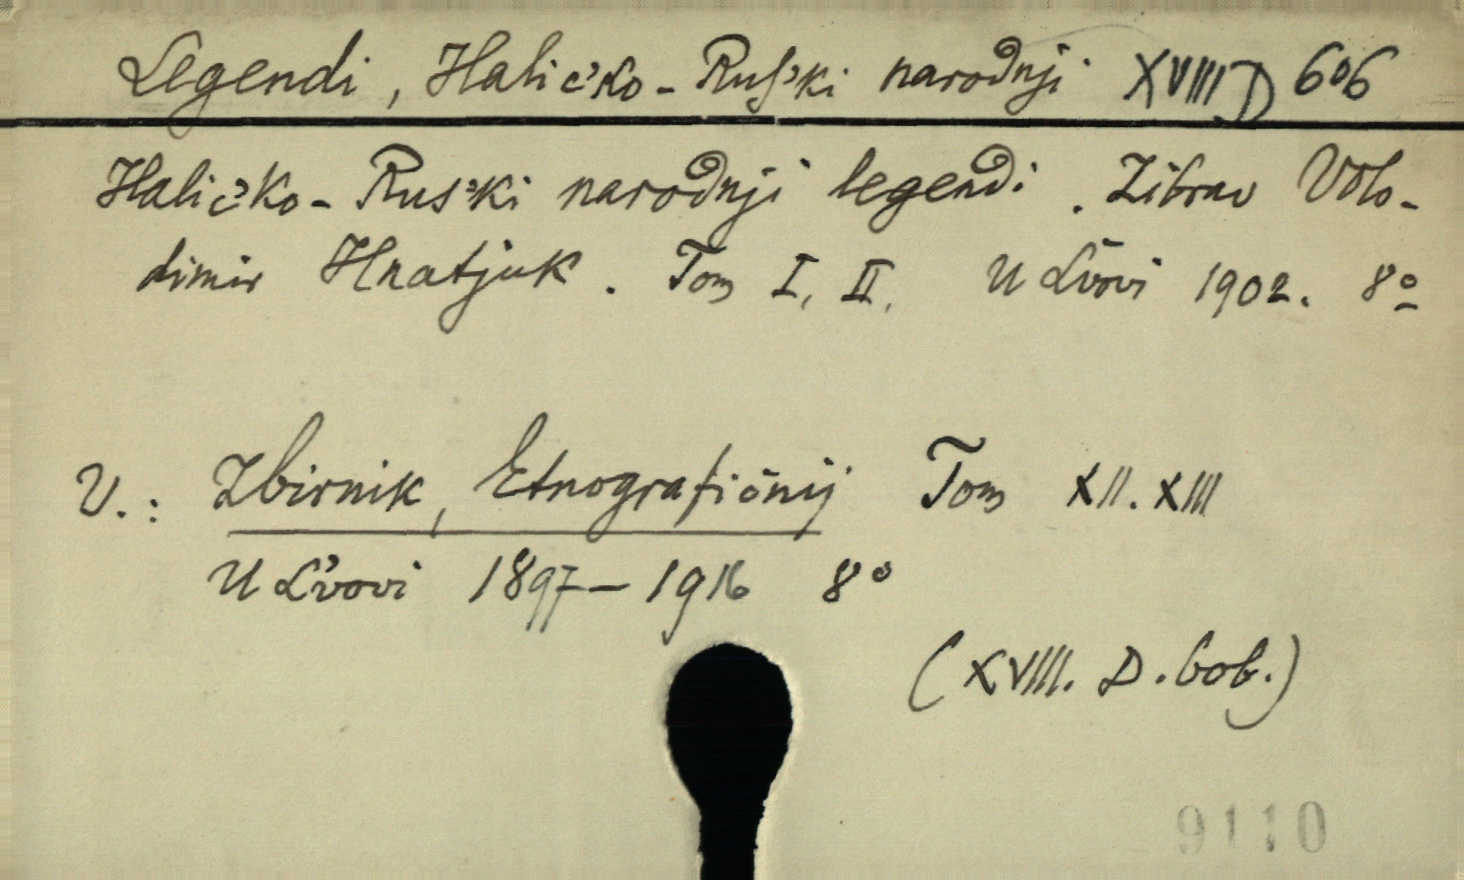 Legendi, Halič'ko-Rus'ki narodnji XVIII D 606
Halič'ko-Rus'ki narodnji legendi. Zibrav Volo-
dimir Hnatjuk. Tom I, II. U Lvovi 1902. 8º
V.: Zbirnik, Etnografičnij Tom XII. XIII
U L'vovi 1897-1916 8º
(XVIII. D. 606.)
9110